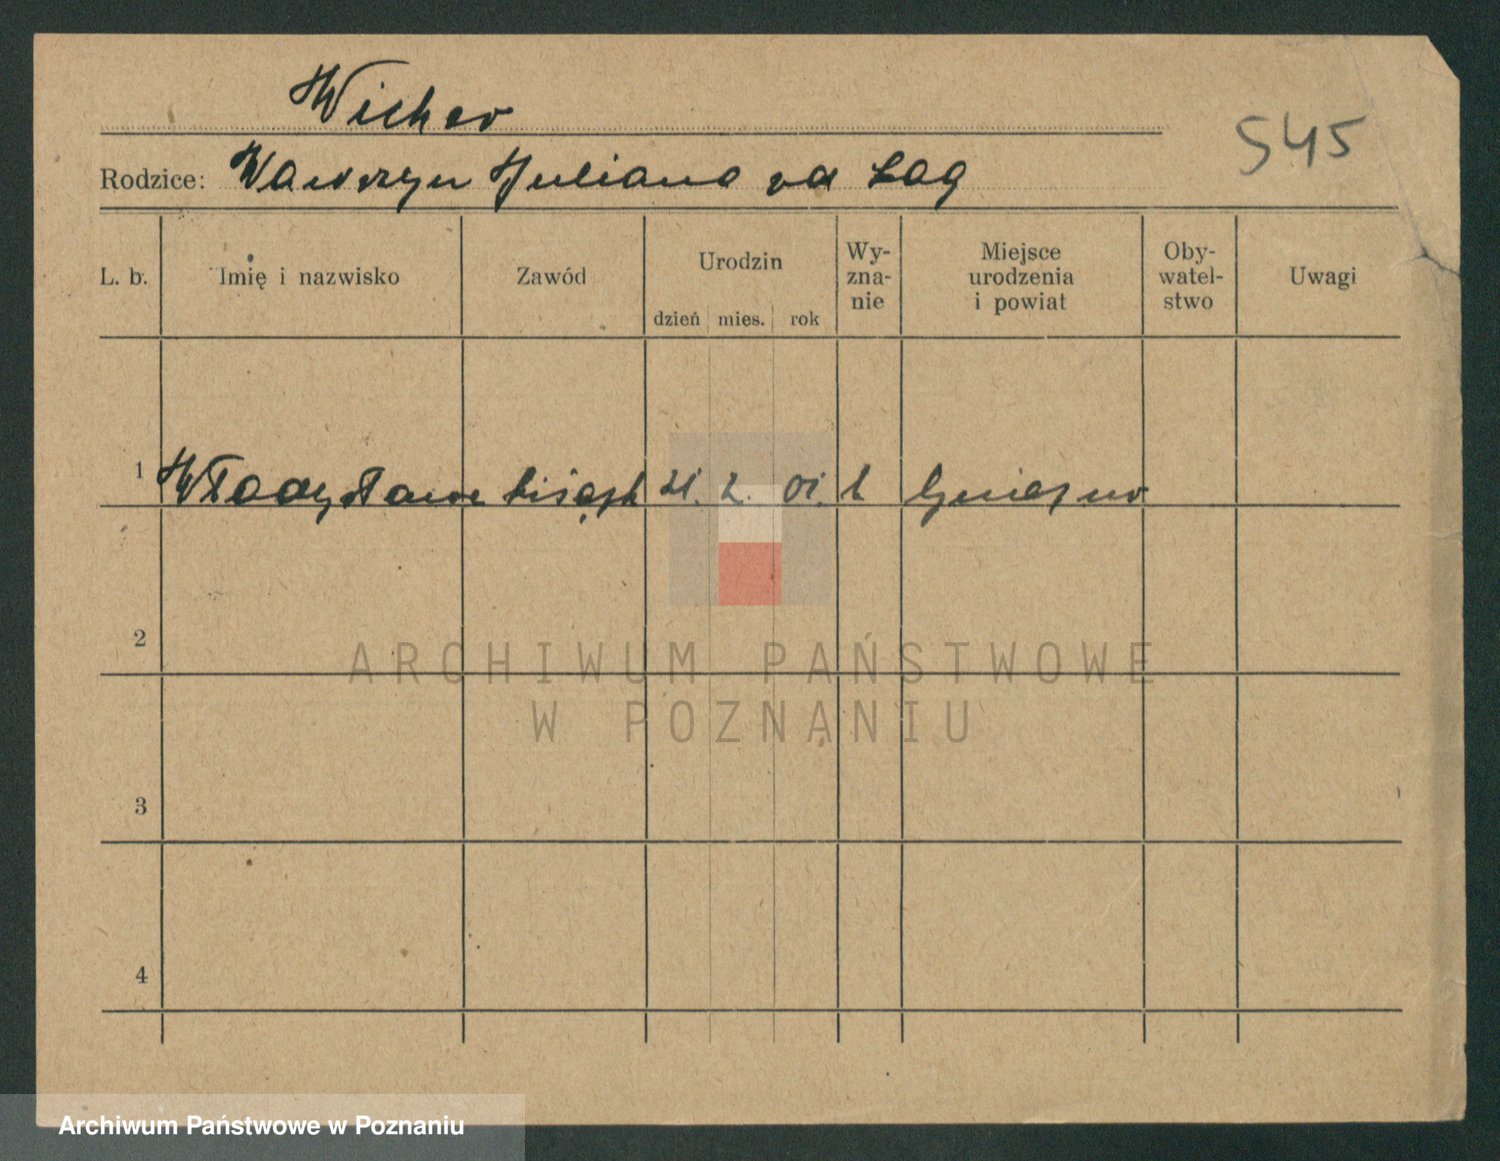 Wicher
545
Rodzice: Wawrzyn Juliana zd Lag
L. b.
Imię i nazwisko
Zawód
Urodzin
dzień mies. rok
Wy-
zna-
nie
Miejsce
urodzenia
i powiat
Oby-
watel-
stwo
Uwagi
1 Władysława 21. 2. 01. Gniezno
2
ARCHIWUM PAŃSTWOWE
W POZNANIU
3
4
Archiwum Państwowe w Poznaniu